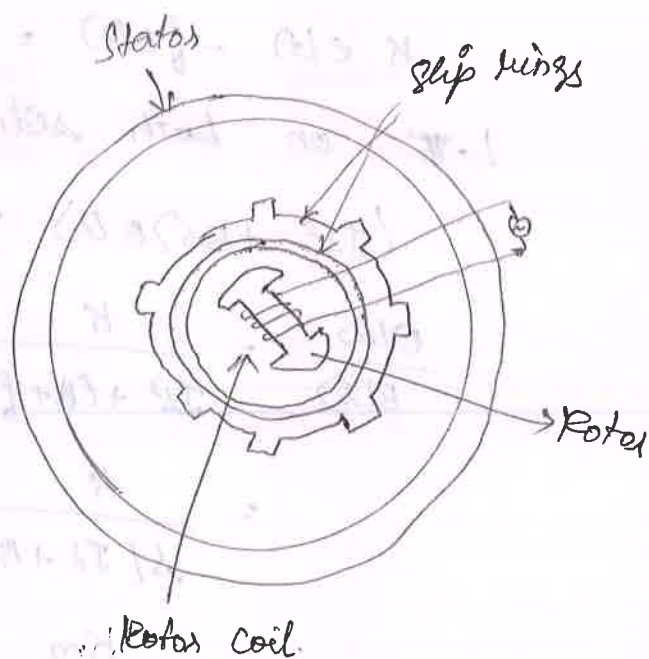 Stator
Slip rings
Rotor
Rotor coil